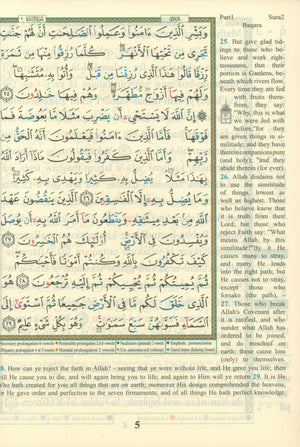 Part1 Sura2
Baqara
وَبَشِّرِ ٱلَّذِينَ ءَامَنُوا۟ وَعَمِلُوا۟ ٱلصَّٰلِحَٰتِ أَنَّ لَهُمْ جَنَّٰتٍ
تَجْرِى مِن تَحْتِهَا ٱلْأَنْهَٰرُ كُلَّمَا رُزِقُوا۟ مِنْهَا مِن ثَمَرَةٍ
رِّزْقًا قَالُوا۟ هَٰذَا ٱلَّذِى رُزِقْنَا مِن قَبْلُ وَأُتُوا۟ بِهِۦ مُتَشَٰبِهًا
وَلَهُمْ فِيهَآ أَزْوَٰجٌ مُّطَهَّرَةٌ وَهُمْ فِيهَا خَٰلِدُونَ ٢٥
إِنَّ ٱللَّهَ لَا يَسْتَحْىِۦٓ أَن يَضْرِبَ مَثَلًا مَّا بَعُوضَةً فَمَا
فَوْقَهَا فَأَمَّا ٱلَّذِينَ ءَامَنُوا۟ فَيَعْلَمُونَ أَنَّهُ ٱلْحَقُّ مِن
رَّبِّهِمْ وَأَمَّا ٱلَّذِينَ كَفَرُوا۟ فَيَقُولُونَ مَاذَآ أَرَادَ ٱللَّهُ
بِهَٰذَا مَثَلًا يُضِلُّ بِهِۦ كَثِيرًا وَيَهْدِى بِهِۦ كَثِيرًا
وَمَا يُضِلُّ بِهِۦٓ إِلَّا ٱلْفَٰسِقِينَ ٢٦ ٱلَّذِينَ يَنقُضُونَ عَهْدَ
ٱللَّهِ مِنۢ بَعْدِ مِيثَٰقِهِۦ وَيَقْطَعُونَ مَآ أَمَرَ ٱللَّهُ بِهِۦٓ أَن يُوصَلَ
وَيُفْسِدُونَ فِى ٱلْأَرْضِ أُو۟لَٰٓئِكَ هُمُ ٱلْخَٰسِرُونَ ٢٧
كَيْفَ تَكْفُرُونَ بِٱللَّهِ وَكُنتُمْ أَمْوَٰتًا فَأَحْيَٰكُمْ
ثُمَّ يُمِيتُكُمْ ثُمَّ يُحْيِيكُمْ ثُمَّ إِلَيْهِ تُرْجَعُونَ ٢٨ هُوَ
ٱلَّذِى خَلَقَ لَكُم مَّا فِى ٱلْأَرْضِ جَمِيعًا ثُمَّ ٱسْتَوَىٰٓ إِلَى
ٱلسَّمَآءِ فَسَوَّىٰهُنَّ سَبْعَ سَمَٰوَٰتٍ وَهُوَ بِكُلِّ شَىْءٍ عَلِيمٌ ٢٩
25. But give glad tid-
ings to those who be-
lieve and work righ-
teousness, that their
portion is Gardens, be-
neath which rivers flow.
Every time they are fed
with fruits there-
from, they say:
"Why, this is what
we were fed with
before,"for they
are given things in si-
militude; and they have
therein companions pure
(and holy); "and they
abide therein (for ever).
26. Allah disdains not
to use the similitude
of things, lowest as
well as highest. Those
who believe know that
it is truth from their
Lord; but those who
reject Faith say: "What
means Allah by this
similitude?"By it He
causes many to stray,
and many He leads
into the right path; but
He causes not to stray,
except those who
forsake (the path), -
27. Those who break
Allah's Covenant after
it is ratified, and who
sunder what Allah has
ordered to be joined,
and do mischief on
earth: these cause loss
(only) to themselves.
8. How can ye reject the faith in Allah? - seeing that ye were without life, and He gave you life; then
will He cause you to die, and will again bring you to life; and again to Him will ye return. 29. It is He
Who hath created for you all things that are on earth; moreover His design comprehended the heavens,
for He gave order and perfection to the seven firmaments; and of all things He hath perfect knowledge.
5